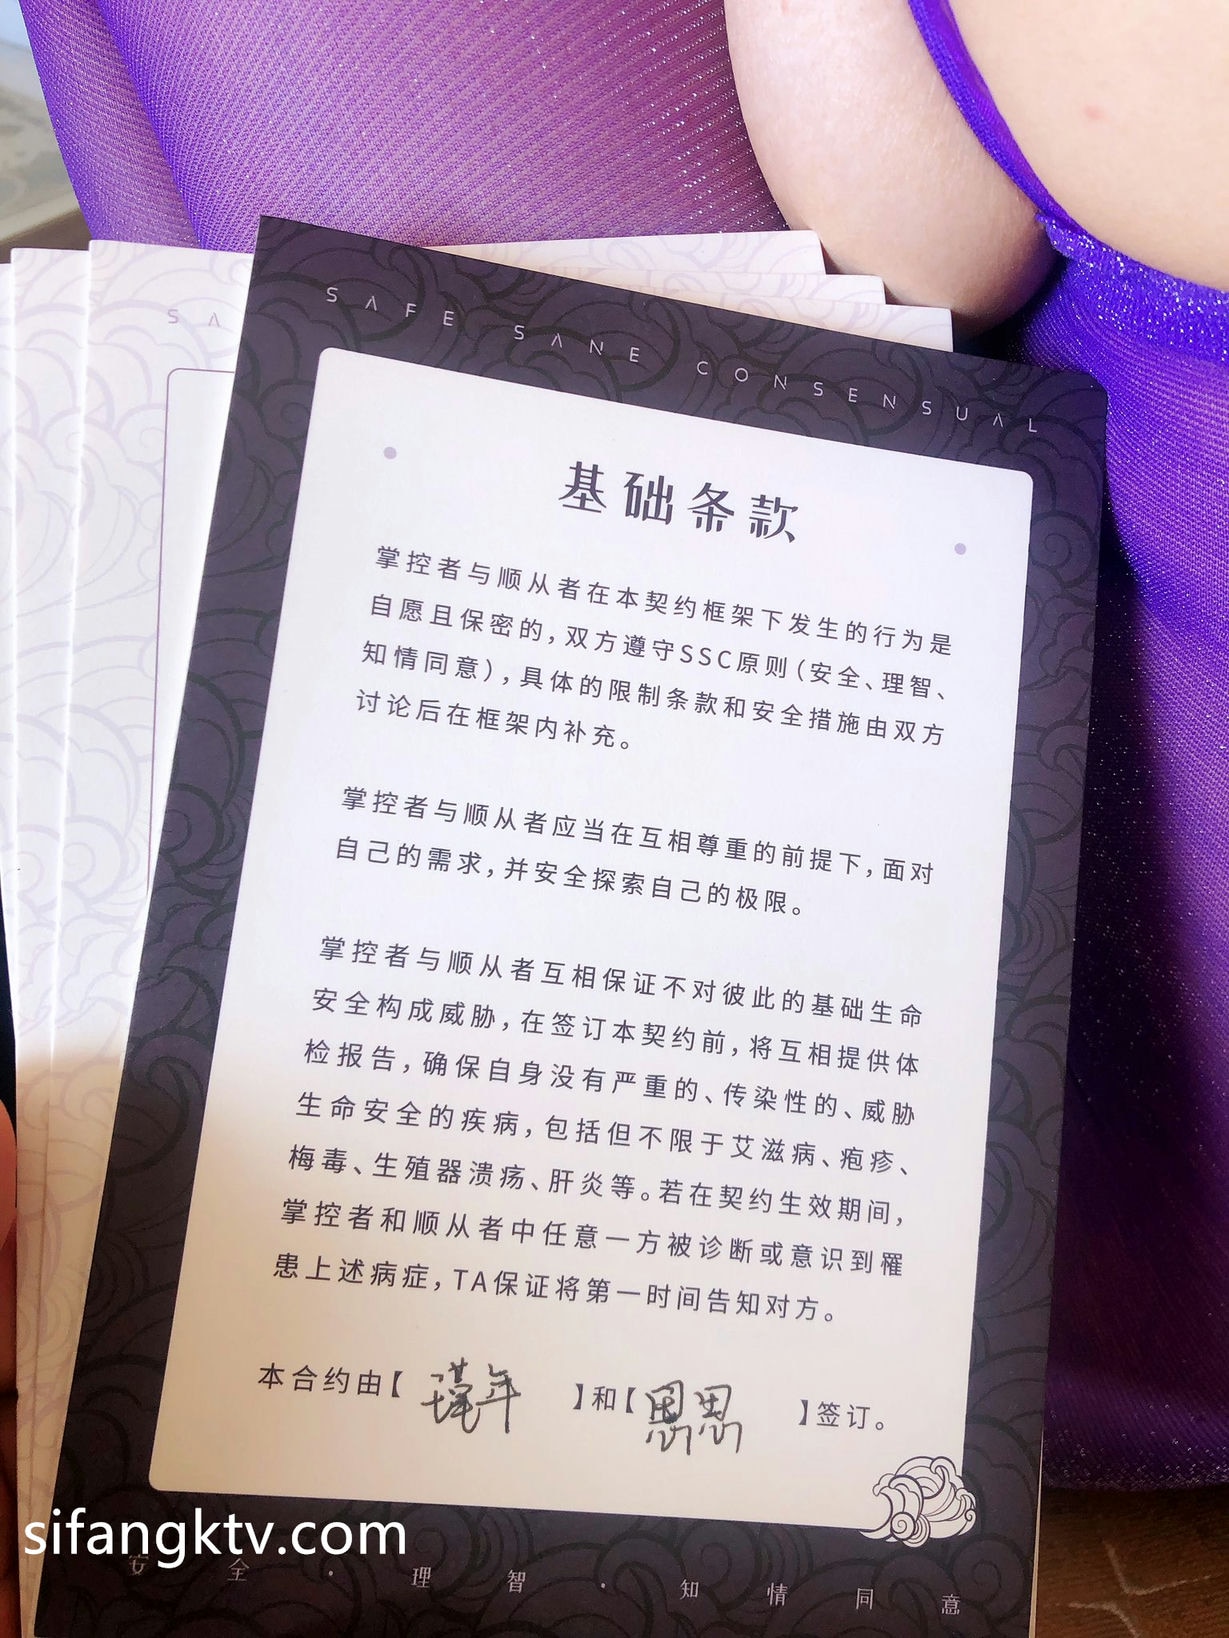 SAFE SANE CONSENSUAL
SA
基础条款
掌控者与顺从者在本契约框架下发生的行为是
自愿且保密的，双方遵守SSC原则（安全、理智、
知情同意），具体的限制条款和安全措施由双方
讨论后在框架内补充。
掌控者与顺从者应当在互相尊重的前提下，面对
自己的需求，并安全探索自己的极限。
掌控者与顺从者互相保证不对彼此的基础生命
安全构成威胁，在签订本契约前，将互相提供体
检报告，确保自身没有严重的、传染性的、威胁
生命安全的疾病，包括但不限于艾滋病、疱疹、
梅毒、生殖器溃疡、肝炎等。若在契约生效期间，
掌控者和顺从者中任意一方被诊断或意识到罹
患上述病症，TA保证将第一时间告知对方。
本合约由【瑾年】和【思思】签订。
sifangktv.com
安全·理智·知情同意